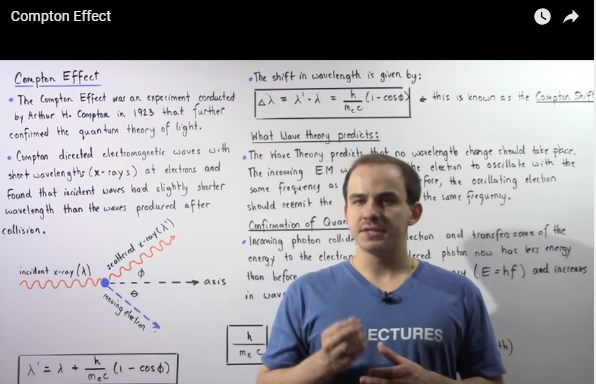 Compton Effect
Compton Effect
• The Compton Effect was an experiment conducted
by Arthur H. Compton in 1923 that further
confirmed the quantum theory of light.
• Compton directed electromagnetic waves with
short wavelengths (x-rays) at electrons and
found that incident waves had slightly shorter
wavelength than the waves produced after
collision.
incident x-ray (λ)
scattered x-ray (λ')
ϕ
θ
axis
moving electron
λ' = λ + h/mₑc (1 - cosϕ)
• The shift in wavelength is given by:
Δλ = λ' - λ = h/mₑc (1 - cosϕ) ← this is known as the Compton Shift
What Wave Theory predicts:
• The Wave Theory predicts that no wavelength change should take place.
The incoming EM the electron to oscillate with the
same frequency as the oscillating electron
should reemit the the same frequency.
Confirmation of
• Incoming photon and transfers some of the
energy to the photon now has less energy
than before (E = hf) and increases
in
h/mₑc
ECTURES